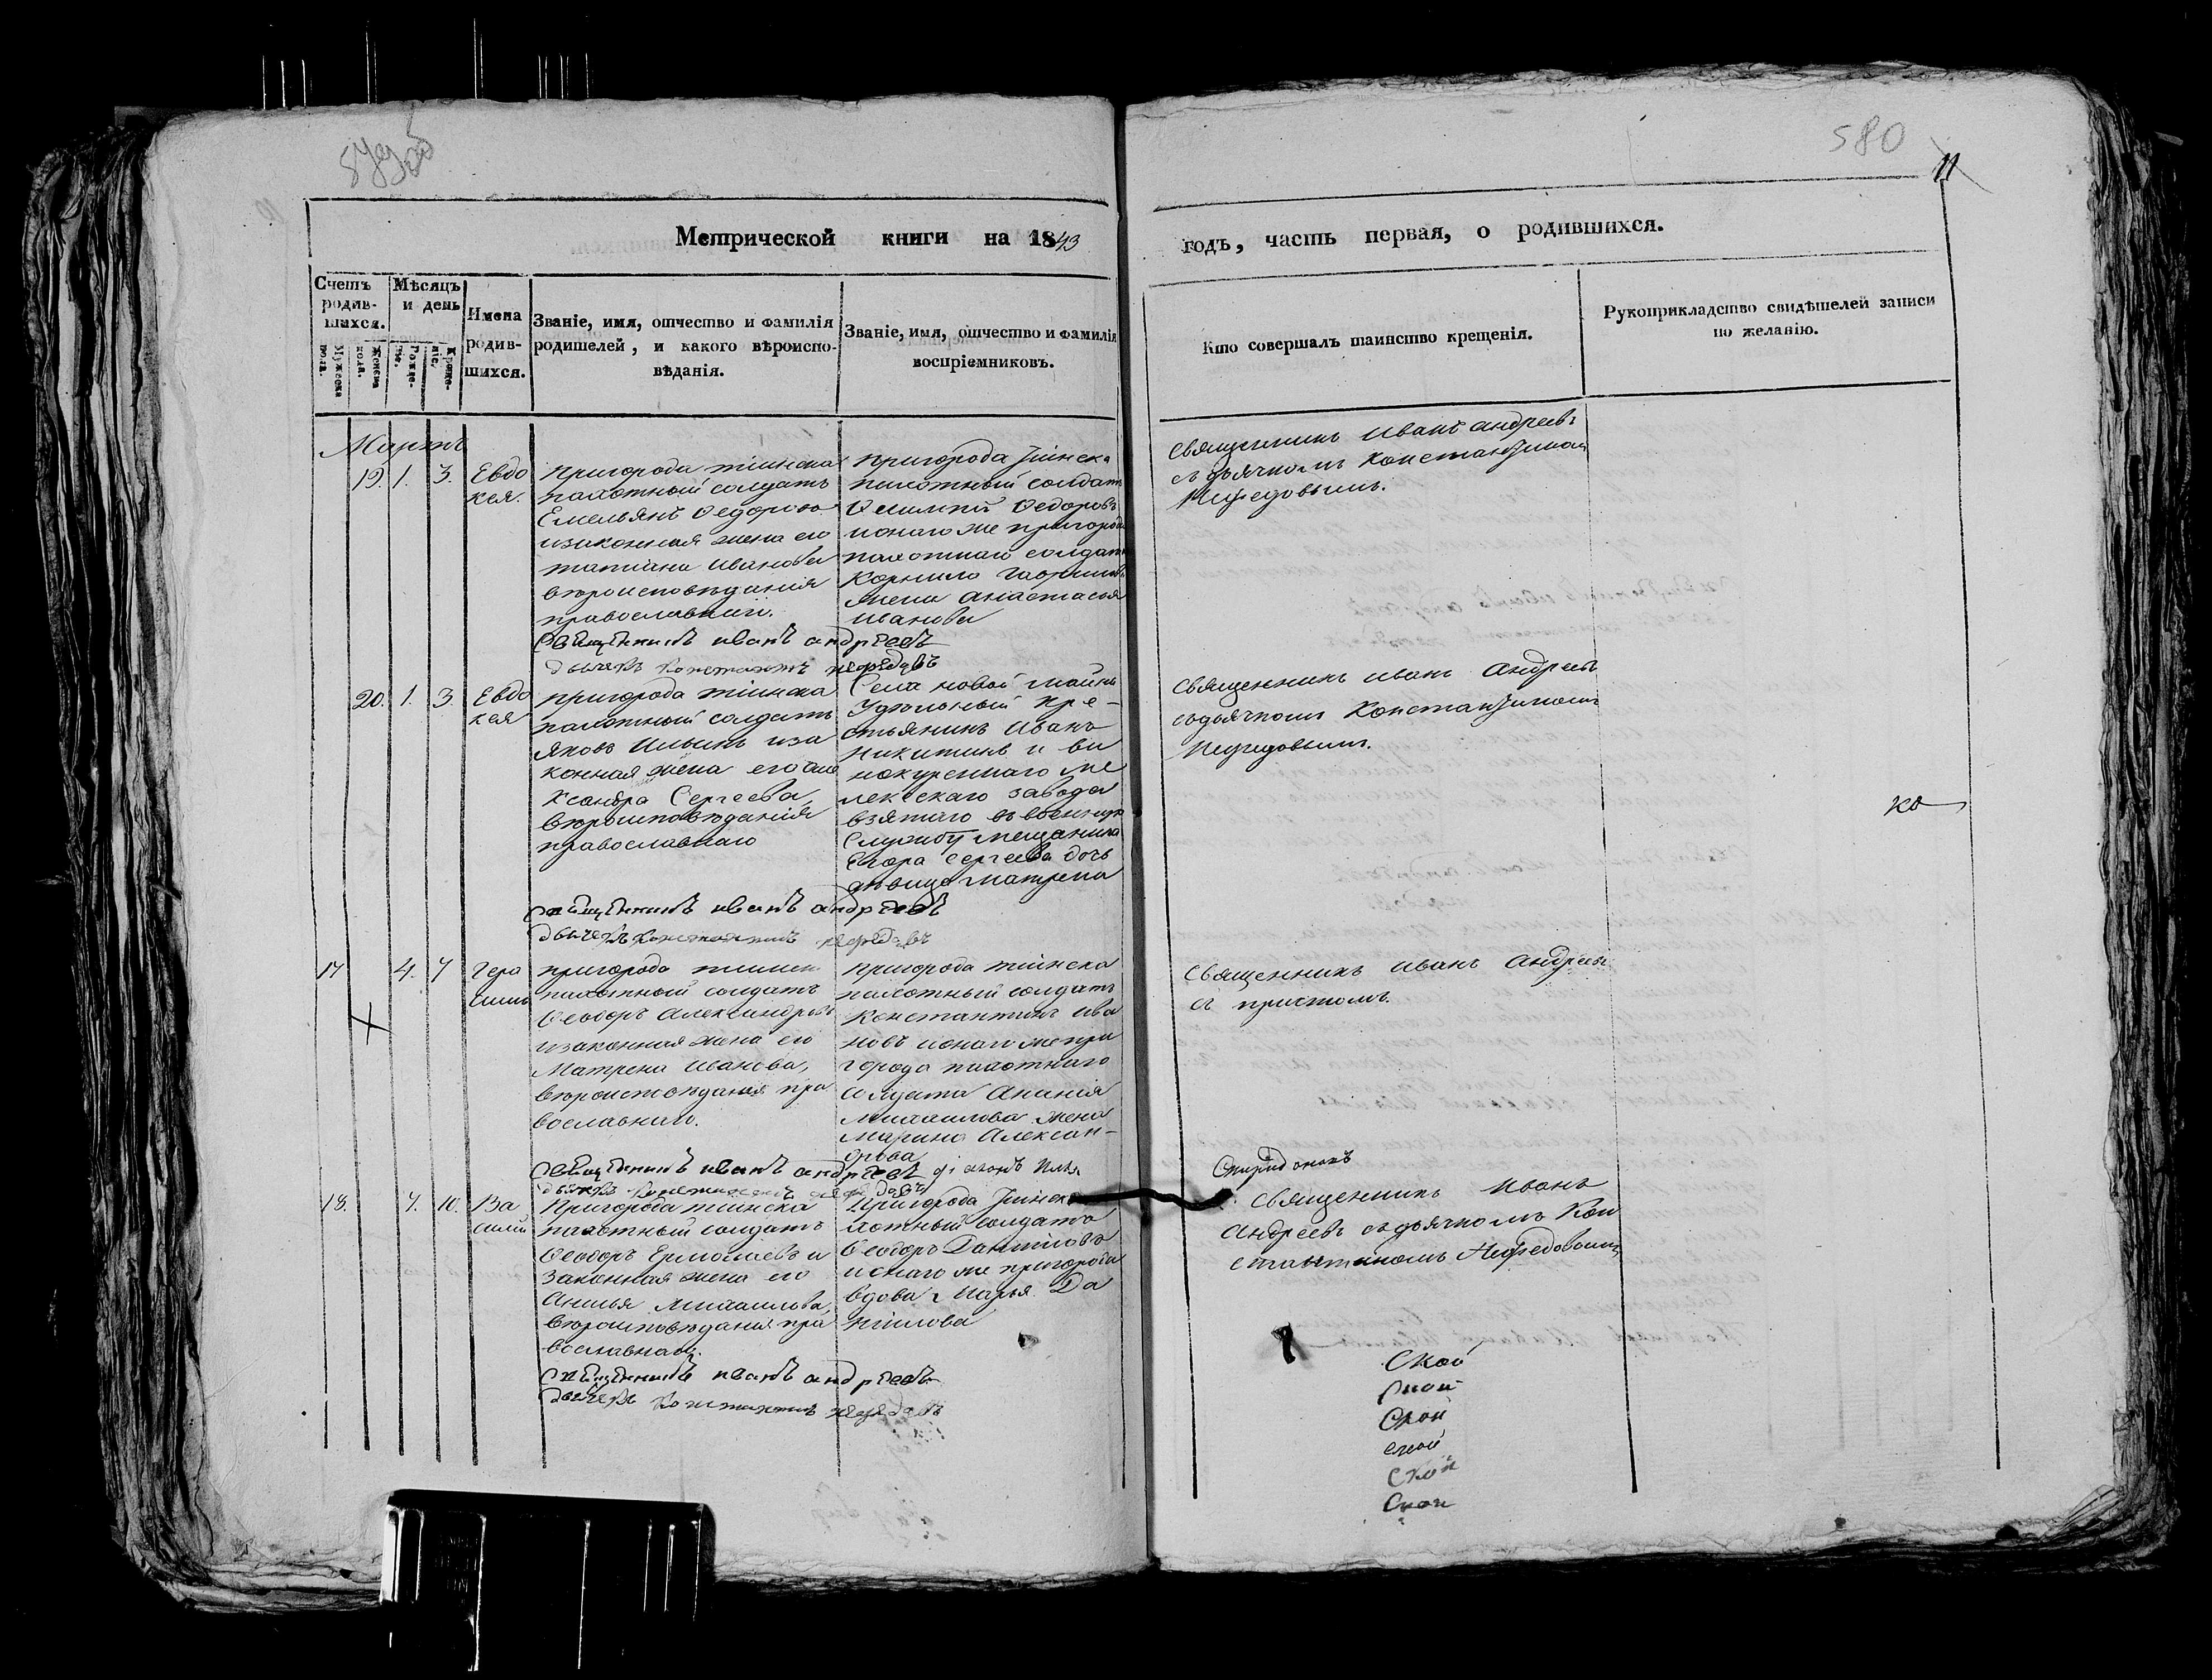 579об
580
11
Метрической книги на 1843
годъ, часть первая, о родившихся.
Счетъ родив-
шихся.
Мужеска
пола.
Женска
пола.
Мѣсяцъ
и день
Рожде-
ніе.
Креще-
ніе.
Имена
родив-
шихся.
Званіе, имя, отчество и фамилія
родителей, и какого вѣроиспо-
вѣданія.
Званіе, имя, отчество и фамилія
воспріемниковъ.
Кто совершалъ таинство крещенія.
Рукоприкладство свидѣтелей записи
по желанію.
Мартъ
19. 1. 3.
Евдо
кея.
Пригорода тіинска
пахотный солдатъ
Емельянъ Ѳедоровъ
изаконная жена его
татіана Иванова
вѣроисповѣданія
православнаго.
Пригорода тіинска
пахотный солдатъ
Ѳедоровъ
ионаго же пригорода
пахотнаго солдата
Корнило Гаврилова
жена анастасья
Иванова
Священникъ Иванъ андреевъ
съ дьячкомъ Константиномъ
Нефедовымъ.
Священникъ иванъ андреевъ
дьячекъ константинъ нефедовъ
20. 1. 3.
Евдо
кея
пригорода тіинска
пахотный солдатъ
Яковъ Ильинъ иза
конная жена его але
ксандра Сергеева,
вѣроисповѣданія
православнаго
Села новой майны
Удѣльный кре-
стьянинъ Иванъ
Никитинъ и ви
нокуреннаго ме
лекескаго завода
взятаго въ военную
Службу мещанина
Егора Сергеева дочь
дѣвица матрена
Священникъ иванъ Андреевъ
съдьячкомъ Константиномъ
Нефедовымъ.
ко
Священникъ иванъ андреевъ
дьячекъ константинъ нефедовъ
17 4. 7
Гера
симъ
пригорода тіинска
пахотный солдатъ
Ѳеодоръ Александровъ
изаконная жена его
Матрена Иванова,
вѣроисповѣданія пра
вославнаго.
пригорода тіинска
пахотный солдатъ
Константинъ Ива
новъ ионаго же при
города пахотнаго
солдата Ананія
Михаилова жена
Марина Алексан-
дрова
Священникъ иванъ Андреевъ
съ причтомъ.
Священникъ иванъ андреевъ діаконъ Илья
Спиридоновъ
дьячекъ константинъ нефедовъ
18. 7. 10.
Ва
силій
Пригорода тіинска
пахотный солдатъ
Ѳеодоръ Ермолаевъ и
законная жена его
Анисья Михаилова,
вѣроисповѣданія пра
вославнаго.
Пригорода тіинска
хотный солдатъ
Ѳеодоръ Даниловъ
ионаго же пригорода
вдова Марья Да
нилова
Священникъ Иванъ
Андреевъ съдьячкомъ Кон
стантиномъ Нефедовымъ
Священникъ иванъ андреевъ
дьячекъ константинъ нефедовъ
Ской
Ской
Ской
ской
Ской
Ской